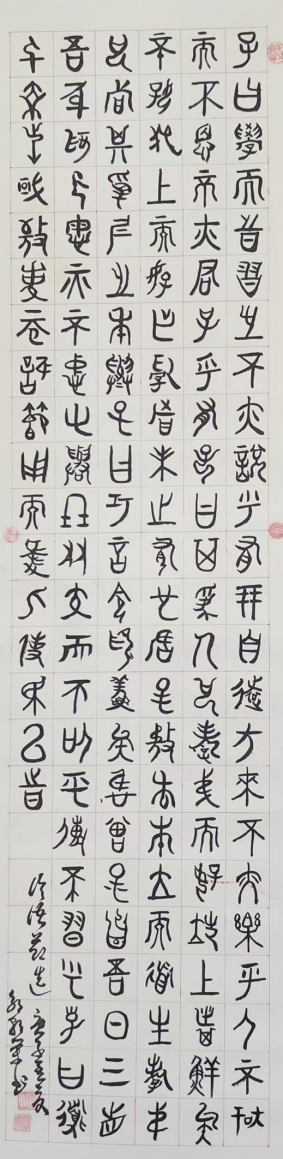 子曰學而時習之不亦說乎有朋自遠方來不亦樂乎人不知
而不慍不亦君子乎有子曰其為人也孝弟而好犯上者鮮矣
不好犯上而好作亂者未之有也君子務本本立而道生孝弟
也者其為仁之本與子曰巧言令色鮮矣仁曾子曰吾日三省
吾身為人謀而不忠乎與朋友交而不信乎傳不習乎子曰道
千乘之國敬事而信節用而愛人使民以時
論語節選